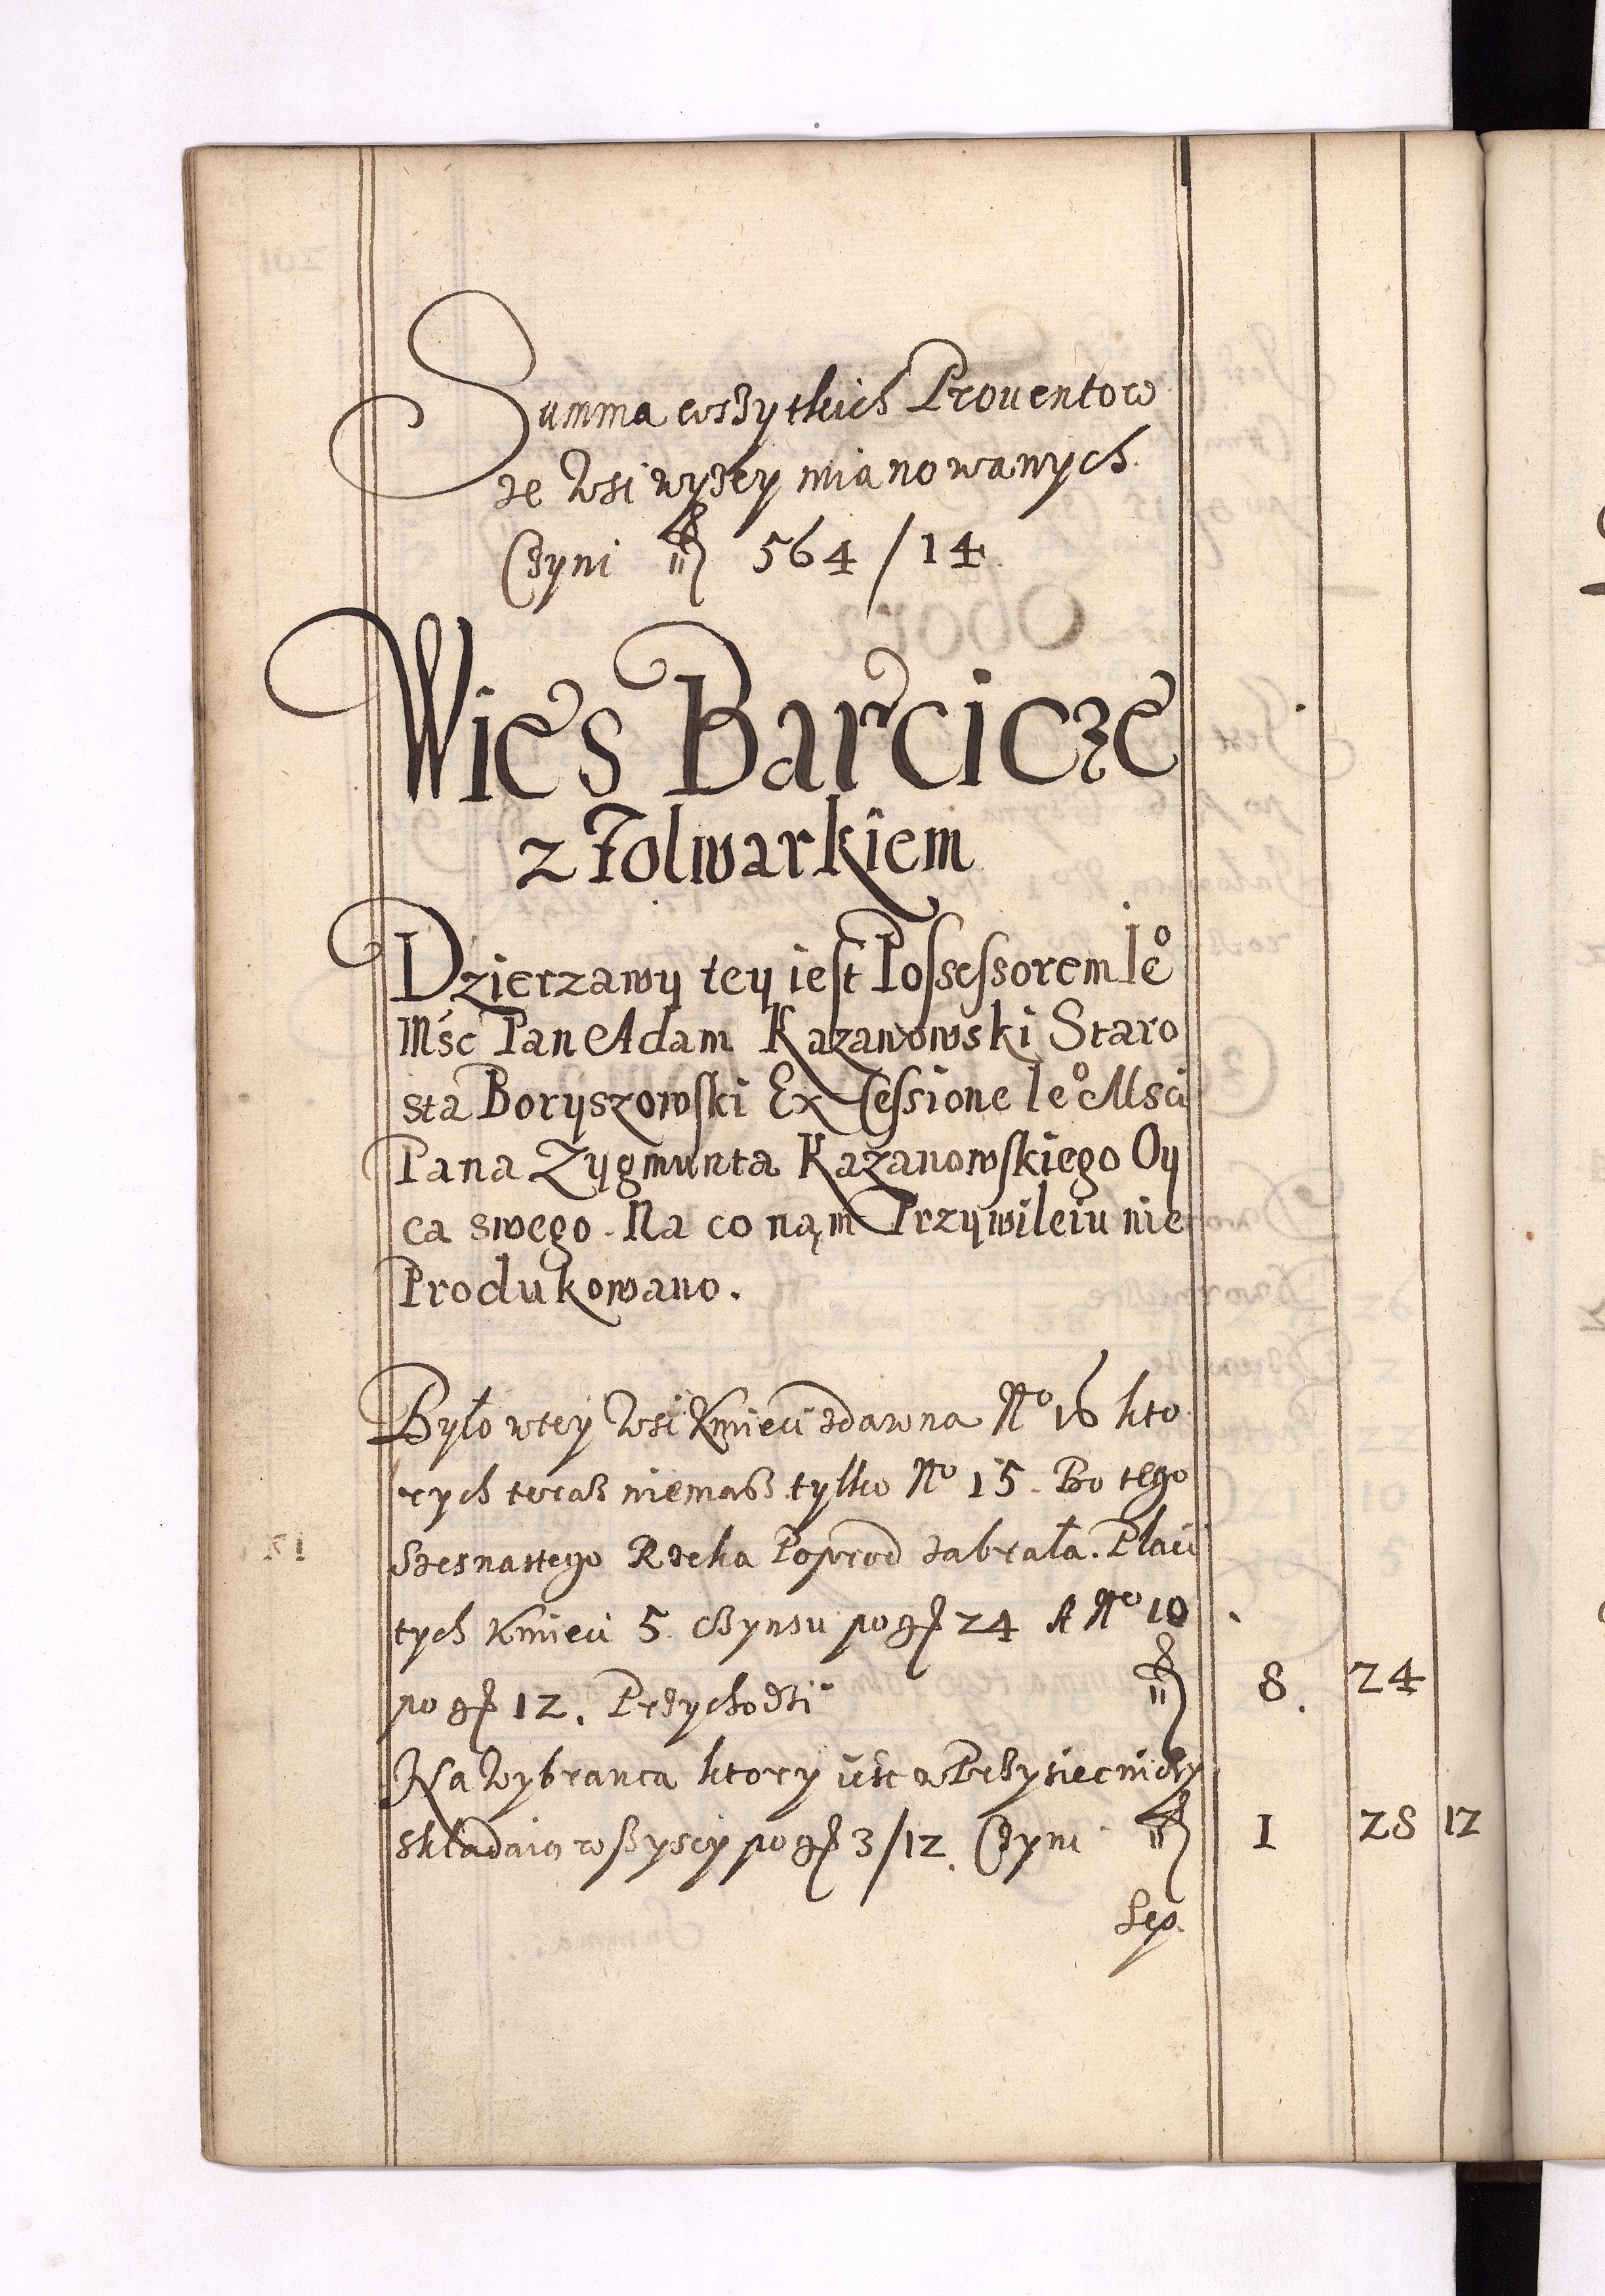 Summa wszytkich Prouentow
ze wsi wyzey mianowanych
Czyni fl 564/14.
Wieś Barcicze
z Folwarkiem
Dzierzawy tey iest Possessorem Ie⁰
Mśc Pan Adam Kazanowski Staro
sta Boryszowski Ex Cessione Ie⁰ Msci
Pana Zygmunta Kazanowskiego Oy
ca swego. Na co nąm Przywileiu nie
Produkowano.
Było wtey wsi Kmieci zdawna N⁰ 16 kto
rych teraß niemaß tylko N⁰ 15. Bo tego
Szesnastego Rzeka Poprod zabrała. Płaci
tych Kmieci 5. Czynsu po gr 24 A N⁰ 10
po gr 12. Przychodzi fl 8. 24
Na Wybranca ktory iest Przysiecnicky
składaią wßyscy po gr 3/12. Czyni fl 1 28 12
Sep.